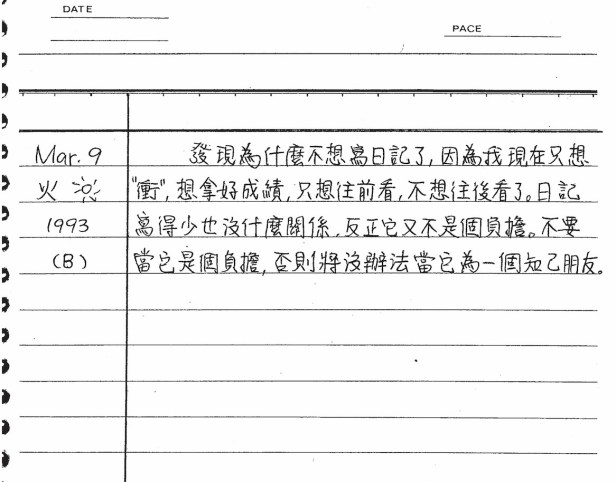 DATE
PACE
Mar. 9 發現為什麼不想寫日記了,因為我現在只想
火 "衝",想拿好成績,只想往前看,不想往後看了。日記
1993 寫得少也沒什麼關係,反正它又不是個負擔。不要
(B) 當它是個負擔,否則將沒辦法當它為一個知己朋友。